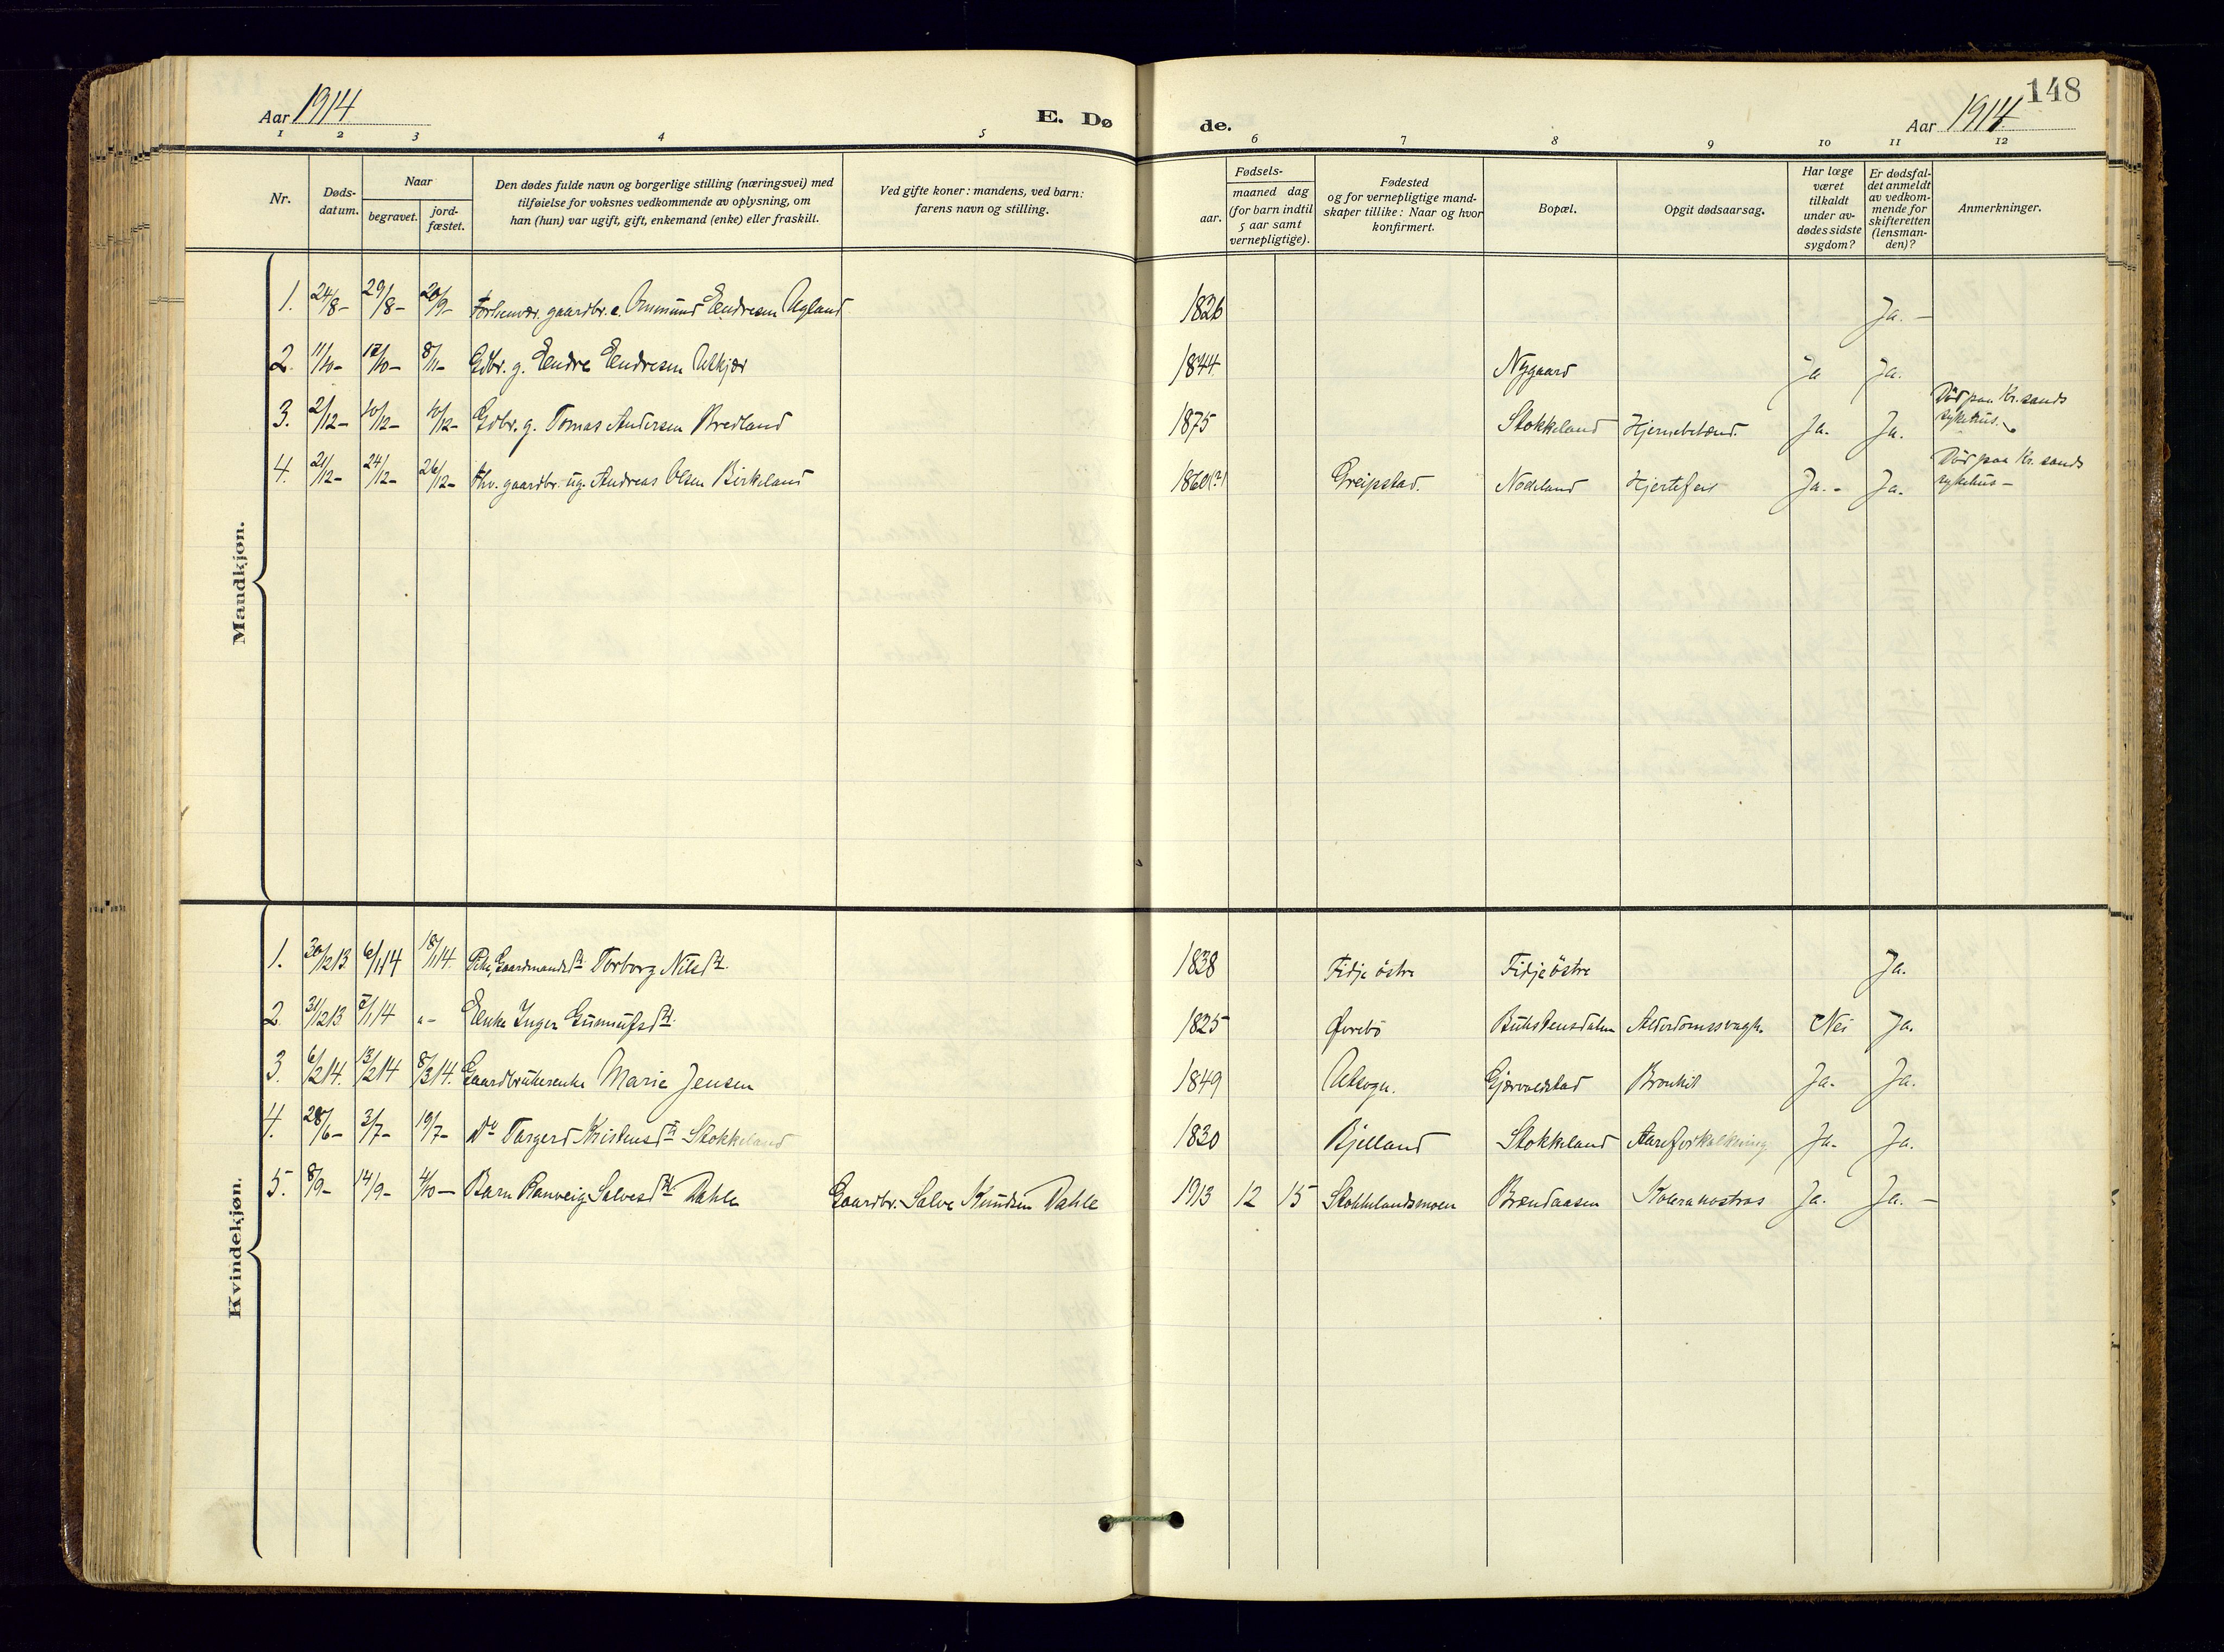 148
Aar 1914
E. Dø de.
Aar 1914
1 2 3 4 5 6 7 8 9 10 11 12
Nr.
Døds-
datum.
Naar
begravet.
jord-
fæstet.
Den dødes fulde navn og borgerlige stilling (næringsvei) med
tilføielse for voksnes vedkommende av oplysning, om
han (hun) var ugift, gift, enkemand (enke) eller fraskilt.
Ved gifte koner: mandens, ved barn:
farens navn og stilling.
Fødsels-
aar.
maaned dag
(for barn indtil
5 aar samt
vernepligtige).
Fødested
og for vernepligtige mand-
skaper tillike: Naar og hvor
konfirmert.
Bopæl.
Opgit dødsaarsag.
Har læge
været
tilkaldt
under av-
dødes sidste
sygdom?
Er dødsfal-
det anmeldt
av vedkom-
mende for
skifteretten
(lensman-
den)?
Anmerkninger.
Mandkjøn.
1. 24/8- 29/8- 20/9- Forhenvær. gaardbr. e. Ommund Endresen Agland 1826 Ja. -
2. 11/10- 17/10- 8/11- Gdbr. g. Endre Endresen Ulkjær 1844 Nygaard Ja Ja.
3. 2/12- 10/12- 10/12- Gdbr. g. Tomas Andersen Bredland 1875 Stokkeland Hjernebetænd. Ja. Ja. Död paa Kr.sands
sykehus.
4. 21/12- 24/12- 26/12- Fhv. gaardbr. ug. Andreas Olsen Birkeland 1860(?) Greipstad. Nodeland Hjertefeil Ja. - Ja. Död paa Kr.sands
sykehus -
Kvindekjøn.
1. 30/12 13. 6/1 14 18/1 14. Pike, Gaardmandsdtr. Torborg Nilsdtr. 1838 Fidje östre Fidje östre Ja.
2. 31/12 13 7/1 14 "- Enke Inger Gunnufsdtr. 1825 Øvrebö Alderdomssvagh. Nei Ja.
3. 6/2 14. 13/2 14 8/3 14. Gaardbrukerenke Marie Jensen 1849 Utsogn. Bronkit Ja. Ja.
4. 28/6- 3/7- 19/7- Do Torgerd Kristensdtr. Stokkeland 1830 Bjelland Stokkeland Aareforkalkning Ja. Ja.
5. 8/9- 14/9- 4/10- Barn Ranveig Salvesdtr. Dahle Gaardbr. Salve Knudsen Dahle 1913 12 15 Stokkelandsmoen Brændaasen Kolera nostras Ja. Ja. -